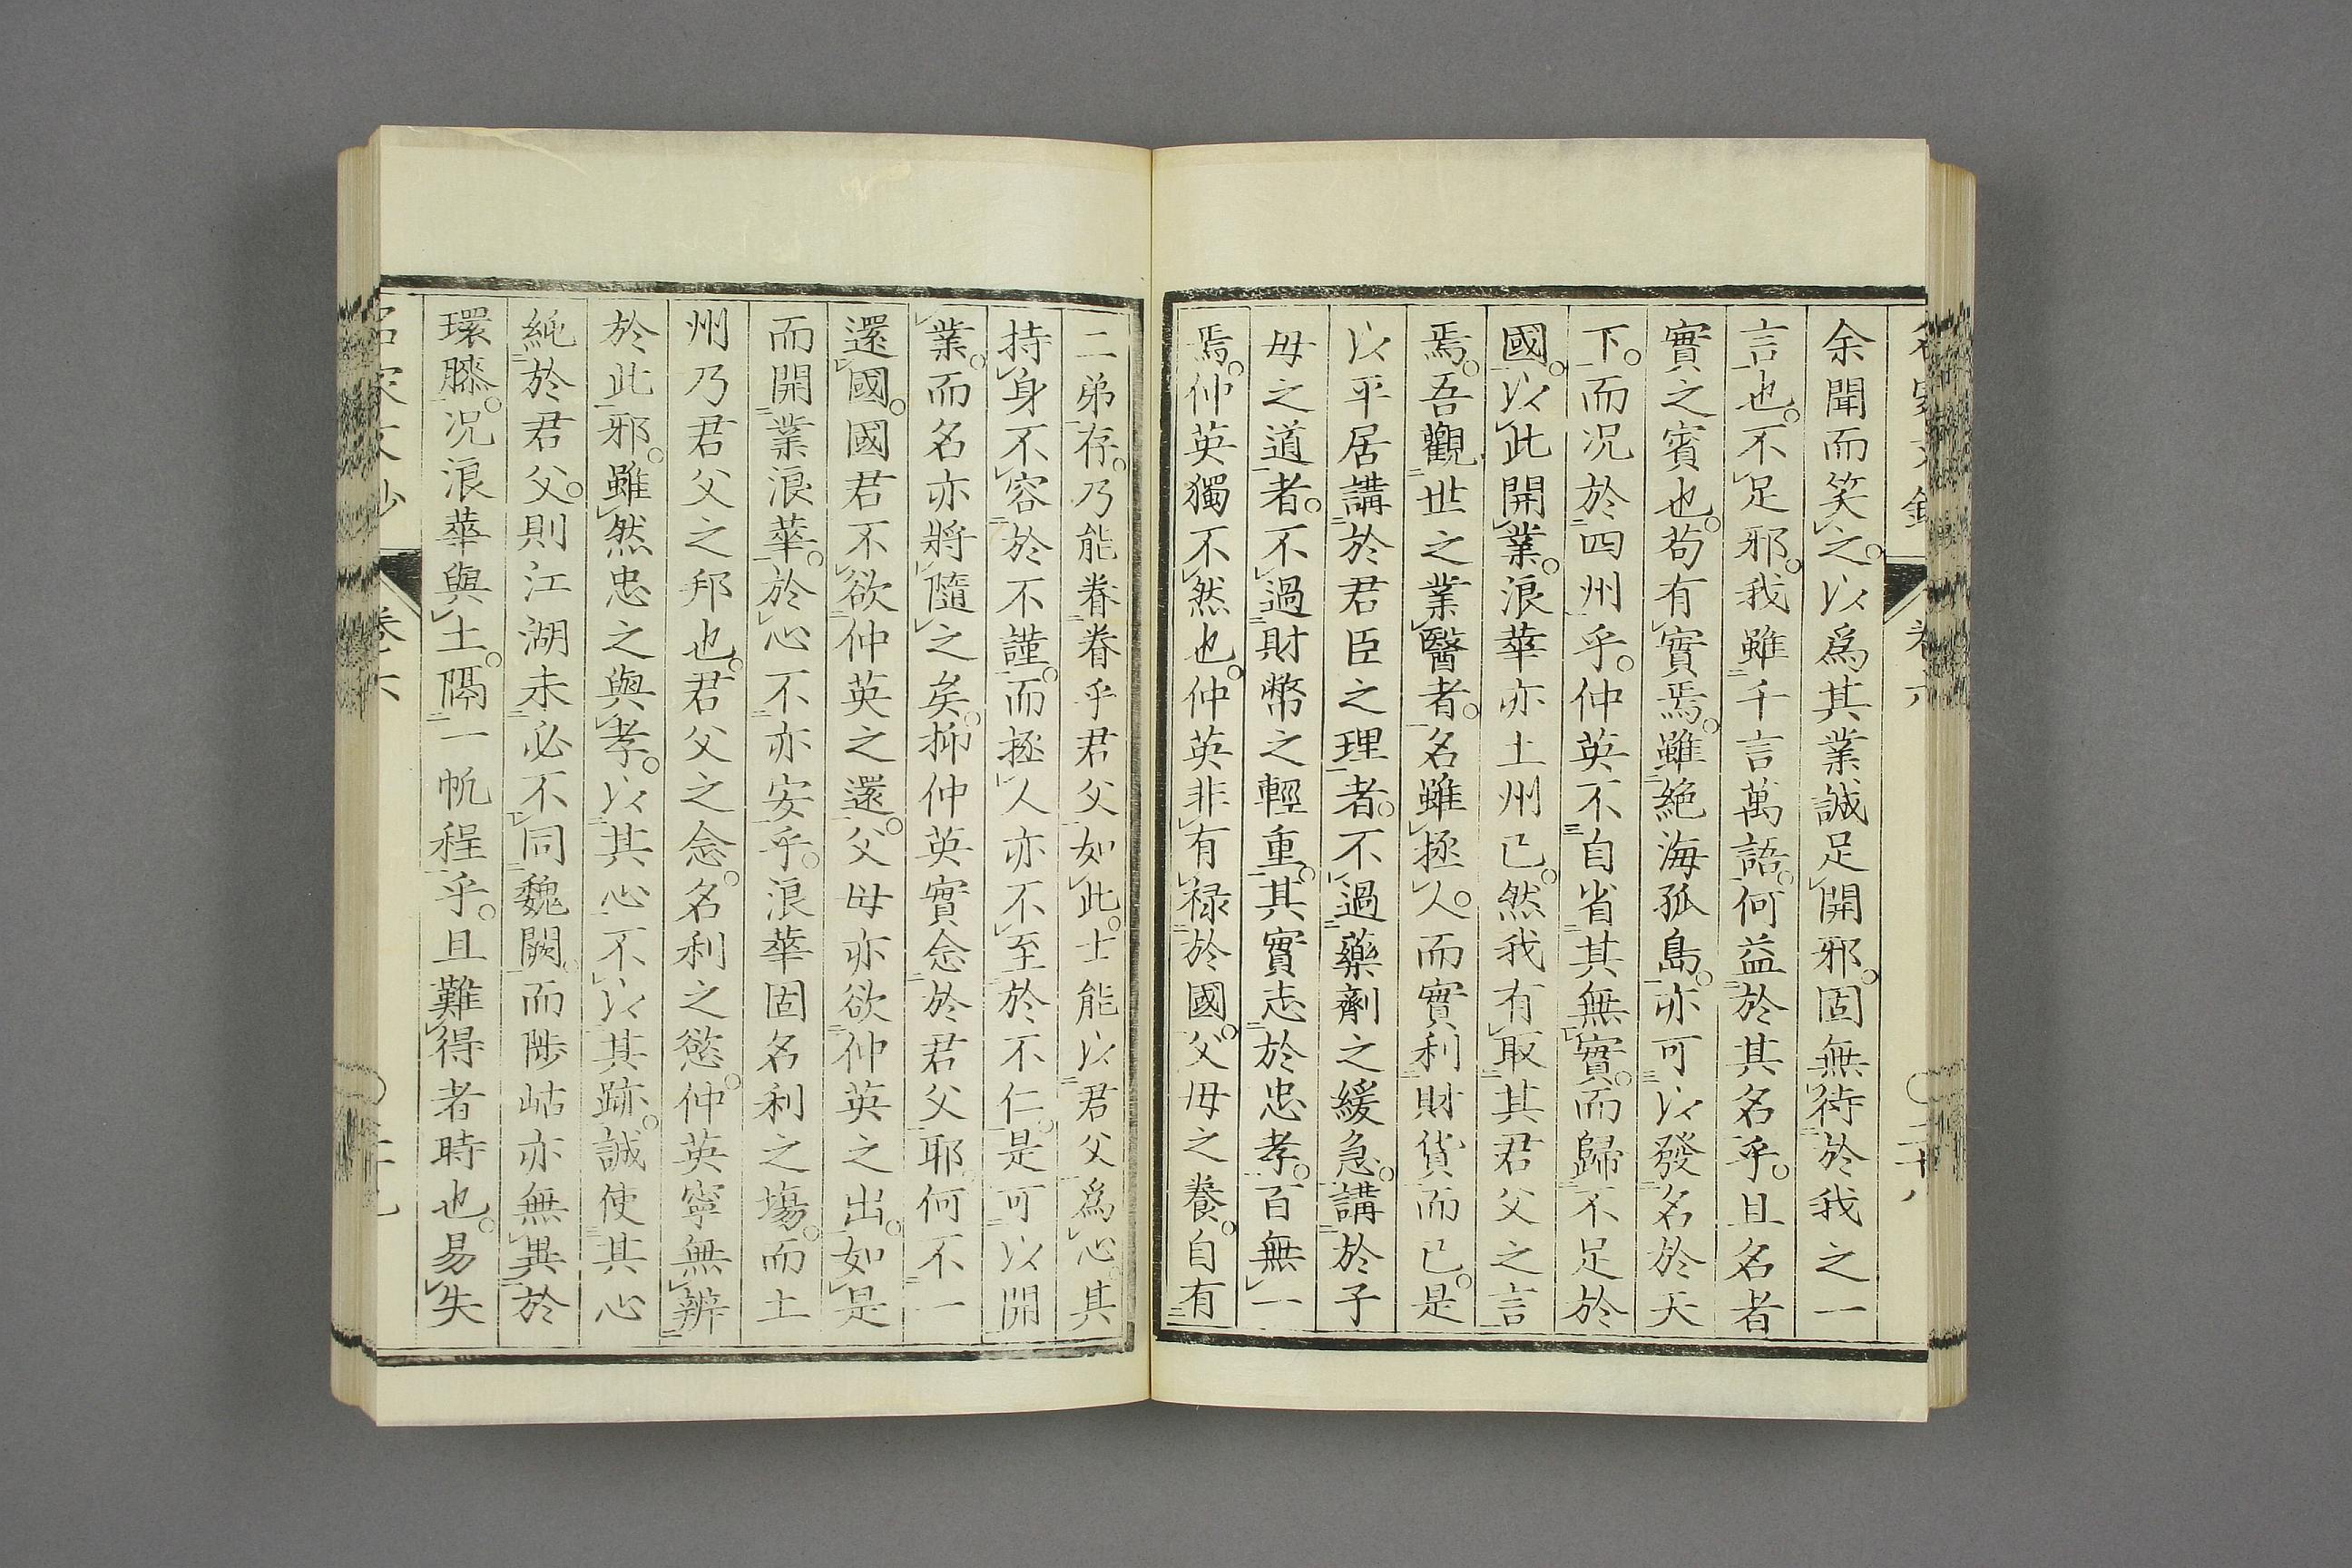 余聞而笑之。以爲其業誠足開邪。固無待於我之一
言也。不足邪。我雖千言萬語。何益於其名乎。且名者
實之賓也。苟有實焉。雖絶海孤島。亦可以發名於天
下。而況於四州乎。仲英不自省其無實。而歸不足於
國。以此開業。浪華亦土州已。然我有取其君父之言
焉。吾觀世之業醫者。名雖拯人。而實利財貨而已。是
以平居講於君臣之理者。不過藥劑之緩急。講於子
母之道者。不過財幣之輕重。其實志於忠孝。百無一
焉。仲英獨不然也。仲英非有禄於國。父母之養。自有
二弟存。乃能眷眷乎君父如此。士能以君父爲心。其
持身不容於不謹。而拯人亦不至於不仁。是可以開
業。而名亦將隨之矣。抑仲英實念於君父耶何不一
還國。國君不欲仲英之還。父母亦欲仲英之出。如是
而開業浪華。於心不亦安乎。浪華固名利之塲。而土
州乃君父之邦也。君父之念。名利之慾。仲英寧無辨
於此邪。雖然忠之與孝。以其心不以其跡。誠使其心
純於君父。則江湖未必不同魏闕。而陟岵亦無異於
環膝。况浪華與土。隔一帆程乎。且難得者時也。易失
卷六